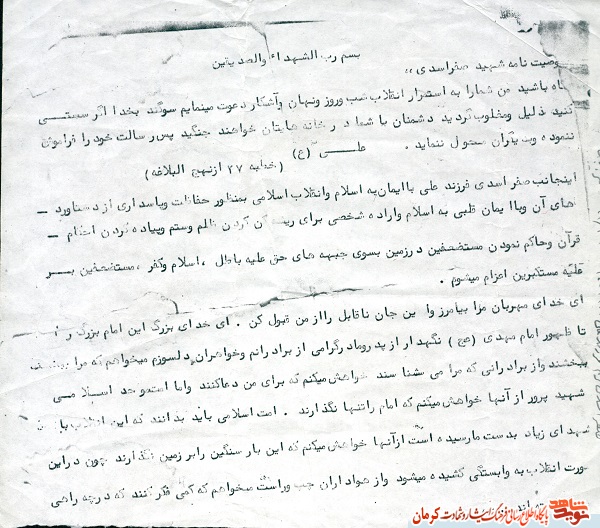 بسم رب الشهداء والصدیقین
وصیت نامه شهید صفراسدی ،،
باشید من شمارا به استمرار انقلاب شب وروز ونهان وآشکار دعوت مینمایم سوگند بخدا اگر سستی
کنید ذلیل ومغلوب گردید دشمنان با شما در خانه هایتان خواهند جنگید پس رسالت خود را فراموش
ننموده وب یگران محول ننماید . علی (ع) (خطبه ۲۷ ازنهج البلاغه)
اینجانب صفر اسدی فرزند علی با ایمان به اسلام وانقلاب اسلامی بمنظور حفاظت وپاسداری از دستاورد –
های آن وبا ایمان قلبی به اسلام واراده شخصی برای ریشه کن کردن ظلم وستم وپیاده کردن احکام –
قرآن وحاکم نمودن مستضعفین درزمین بسوی جبهه های حق علیه باطل ، اسلام وکفر ، مستضعفین بر
علیه مستکبرین اعزام میشوم .
ای خدای مهربان مرا بیامرز وا ین جان ناقابل رااز من قبول کن . ای خدای بزرگ این امام بزرگ را
تا ظهور امام مهدی (عج) نگهدار از پدرومادرگرامی از برادرانم وخواهران دلسوزم میخواهم که مرا
ببخشند واز برادرانی که مرا می شناسند خواهش میکنم که برای من دعاکنند واما امت
شهید پرور از آنها خواهش میکنم که امام راتنها نگذارند . امت اسلامی باید بدانند که این انقلاب با
شهدای زیاد بدست مارسیده است ازآنها خواهش میکنم که این بار سنگین رابر زمین نگذارند چون دراین
صورت انقلاب به وابستگی کشیده میشود واز هواداران چپ وراست میخواهم که کمی فکر کنند که درچه راهی
نوید شاهد
پایگاه اطلاع رسانی فرهنگ ایثار و شهادت کرمان